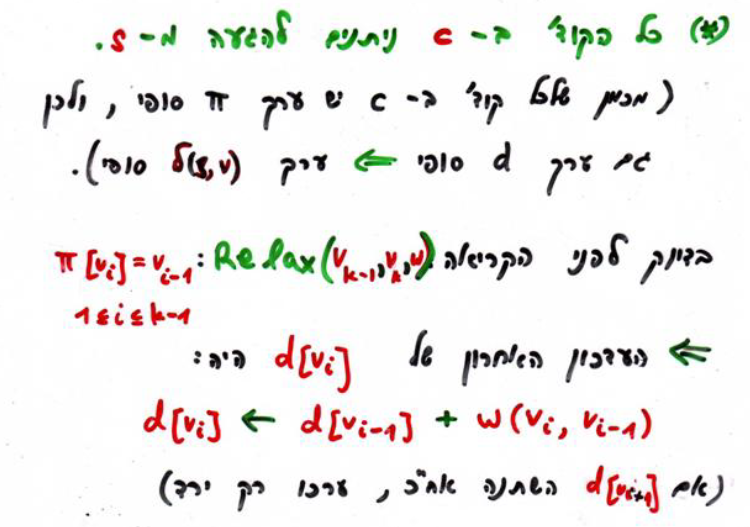 (*) כל הקוד' ב-c ניתנים להגעה מ-s.
(מכיון שלכל קוד' ב-c יש ערך π סופי, ולכן
גם ערך d סופי ⇐ ערך δ(s,v) סופי).
בדיוק לפני הקריאה Relax(v_{k-1},v_k,w): π[v_i]=v_{i-1}
1≤i≤k-1
⇐ העדכון האחרון של d[v_i] היה:
d[v_i] ← d[v_{i-1}] + w(v_i, v_{i-1})
(אם d[v_{i-1}] השתנה אח"כ, ערכו רק ירד)